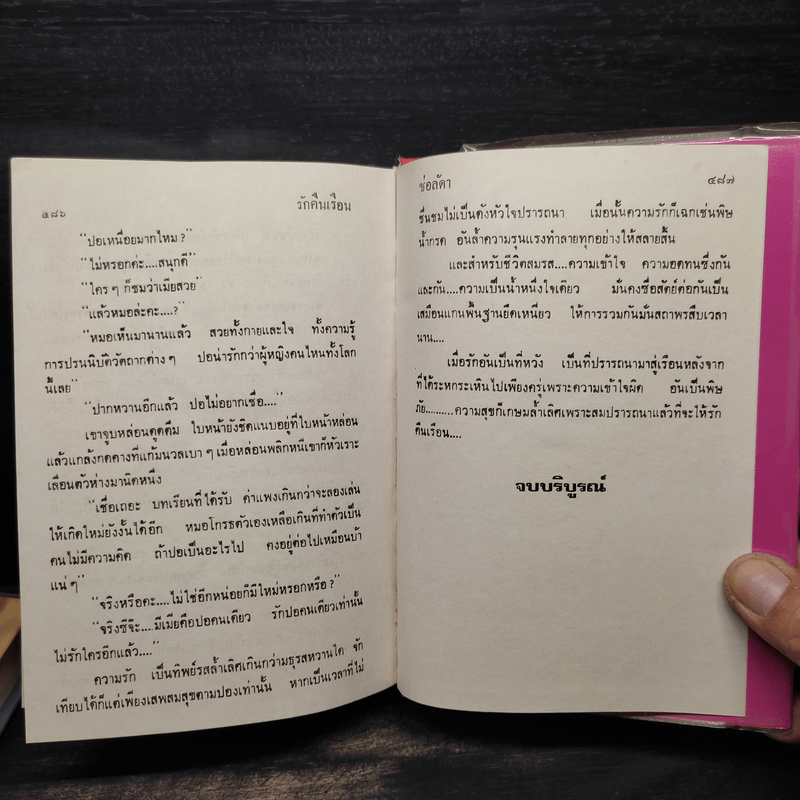 ๕๘๖ รักคืนเรือน
“ปอเหนื่อยมากไหม ?”
“ไม่หรอกค่ะ....สนุกดี”
“ใคร ๆ ก็ชมว่าเมียสวย”
“แล้วหมอล่ะคะ....?”
“หมอเห็นมานานแล้ว สวยทั้งกายและใจ ทั้งความรู้
การปรนนิบัติวัตถากต่าง ๆ ปอน่ารักกว่าผู้หญิงคนไหนทั้งโลก
นี้เลย”
“ปากหวานอีกแล้ว ปอไม่อยากเชื่อ....”
เขาจูบหล่อนดูดดื่ม ใบหน้ายังชิดแนบอยู่ที่ใบหน้าหล่อน
แล้วแกล้งกดคางที่แก้มนวลเบา ๆ เมื่อหล่อนพลิกหนีเขาก็หัวเราะ
เลื่อนตัวห่างมานิดหนึ่ง
“เชื่อเถอะ บทเรียนที่ได้รับ ค่าแพงเกินกว่าจะลองเล่น
ให้เกิดใหม่ยังงั้นได้อีก หมอโกรธตัวเองเหลือเกินที่ทำตัวเป็น
คนไม่มีความคิด ถ้าปอเป็นอะไรไป คงอยู่ต่อไปเหมือนบ้า
แน่ ๆ”
“จริงหรือคะ....ไม่ใช่อีกหน่อยก็มีใหม่หรอกหรือ ?”
“จริงซีจ๊ะ....มีเมียคือปอคนเดียว รักปอคนเดียวเท่านั้น
ไม่รักใครอีกแล้ว....”
ความรัก เป็นทิพย์รสล้ำเลิศเกินกว่ามธุรสหวานใด จัก
เทียบได้ก็แต่เพียงเสพสมสุขตามปองเท่านั้น หากเป็นเวลาที่ไม่
ช่อลัดา ๕๘๗
ชื่นชมไม่เป็นดังหัวใจปรารถนา เมื่อนั้นความรักก็เฉกเช่นพิษ
น้ำกรด อันล้ำความรุนแรงทำลายทุกอย่างให้สลายสิ้น
และสำหรับชีวิตสมรส....ความเข้าใจ ความอดทนซึ่งกัน
และกัน....ความเป็นน้ำหนึ่งใจเดียว มั่นคงซื่อสัตย์ต่อกันเป็น
เสมือนแกนพื้นฐานยึดเหนี่ยว ให้การรวมกันมั่นสถาพรสืบเวลา
นาน....
เมื่อรักอันเป็นที่หวัง เป็นที่ปรารถนามาสู่เรือนหลังจาก
ที่ได้ระหกระเหินไปเพียงครู่เพราะความเข้าใจผิด อันเป็นพิษ
ภัย..........ความสุขก็เกษมล้ำเลิศเพราะสมปรารถนาแล้วที่จะให้รัก
คืนเรือน....
จบบริบูรณ์